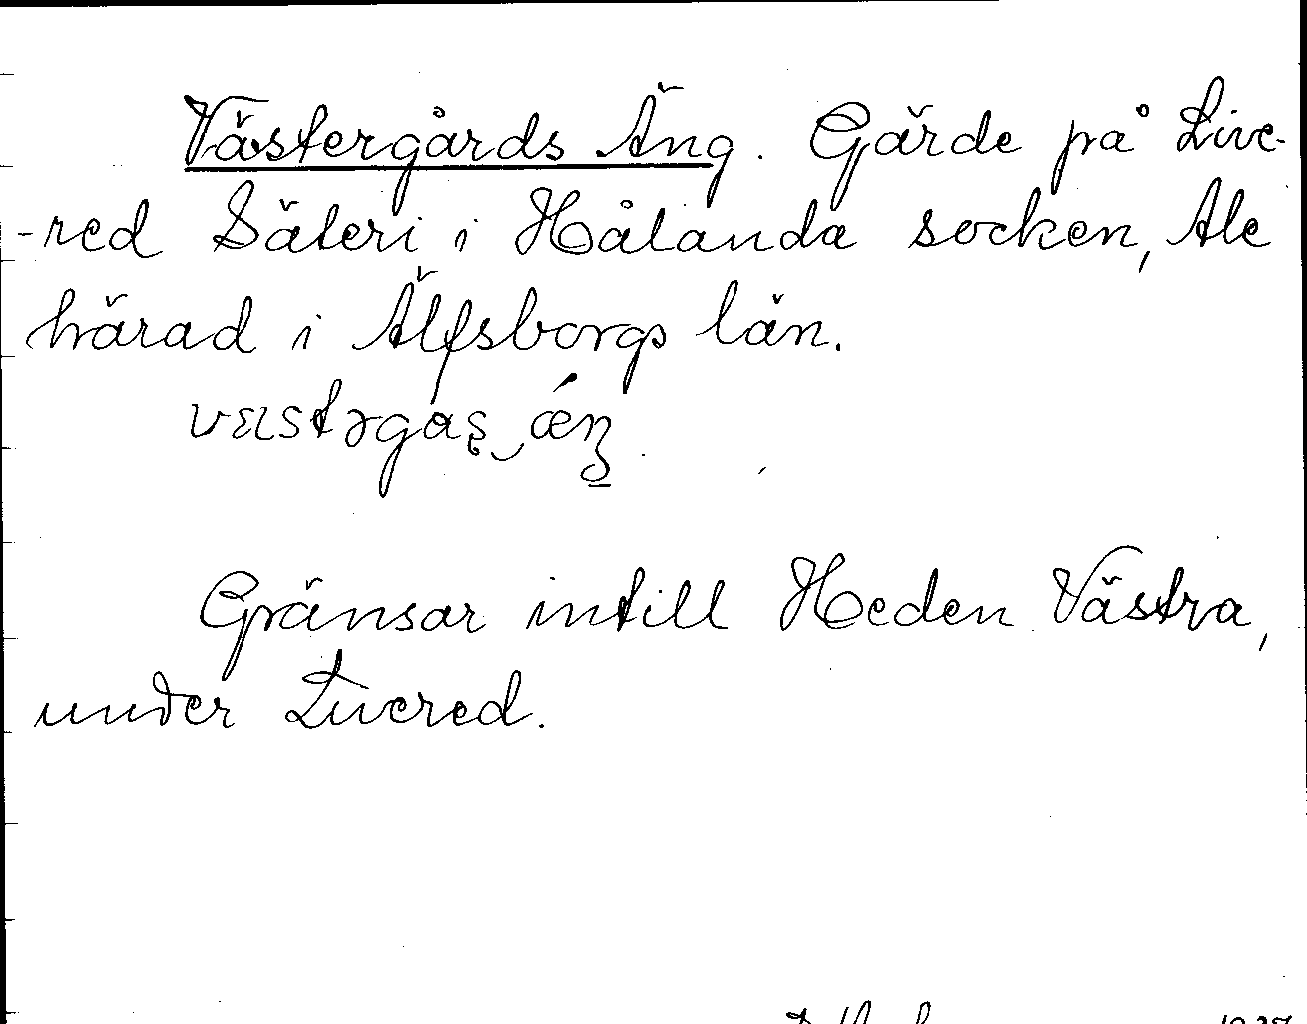 Västergårds Äng. Gärde på Live-
-red Säteri i Hålanda socken, Ale
härad i Älfsborgs län.
Gränsar intill Heden Västra,
under Livered.